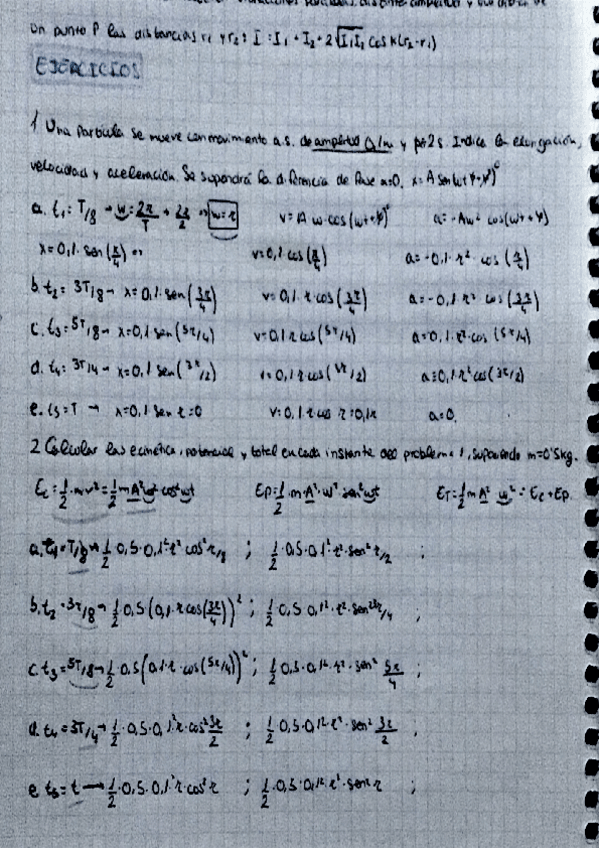 un punto P las distancias r₁ y r₂: I = I₁ + I₂ + 2√I₁I₂ cos K(r₂-r₁)
EJERCICIOS
1 Una partícula se mueve con movimiento a.s. de amplitud 0,1m y p=2s. Indica la elongación,
velocidad y aceleración. Se supondrá la diferencia de fase a=0. x= A sen(wt+φ)
a. t₁= T/8 → w=2π/T → 2π/2 → w=π v= A w cos(wt+φ) a= -Aw² cos(wt+φ)
x=0,1. sen(π/4) v=0,1 cos(π/4) a= -0,1. π² cos (π/4)
b. t₂= 3T/8 → x=0,1.sen(3π/4) v=0,1. π cos(3π/4) a= -0,1. π² cos(3π/4)
c. t₃=5T/8 → x=0,1 sen(5π/4) v=0,1 π cos(5π/4) a=0,1.π².cos(5π/4)
d. t₄: 3T/4 → x=0,1 sen(3π/2) v=0,1 π cos(3π/2) a=0,1.π²cos(3π/2)
e. t₅=T → x=0,1 sen π=0 v=0,1π cos π=0,1π a=0.
2 Calcular las e.cinética, potencial y total en cada instante del problema 1, suponiendo m=0'5kg.
Ec=1/2 mv²=1/2 mA²w² cos²wt Ep=1/2 m.A².w² sen²wt ET=1/2 mA² w² = Ec+Ep
a. t₁=T/8 → 1/2 0,5.0,1².π² cos²π/8 ; 1/2 .0,5.0,1².π².sen²π/2 ;
b. t₂=3T/8 → 1/2 0,5(0,1.π cos(3π/4))² ; 1/2 .0,5 0,1².π².sen²3π/4 ;
c. t₃=5T/8 → 1/2 0,5(0,1.π.cos(5π/4))² ; 1/2 0,5.0,1².π².sen² 5π/4 ;
d. t₄=3T/4 → 1/2 .0,5.0,1²π.cos²3π/2 ; 1/2 0,5.0,1².π².sen² 3π/2 ;
e t₅=t → 1/2 .0,5.0,1²π.cos²π ; 1/2 .0,5.0,1².π².sen²π ;